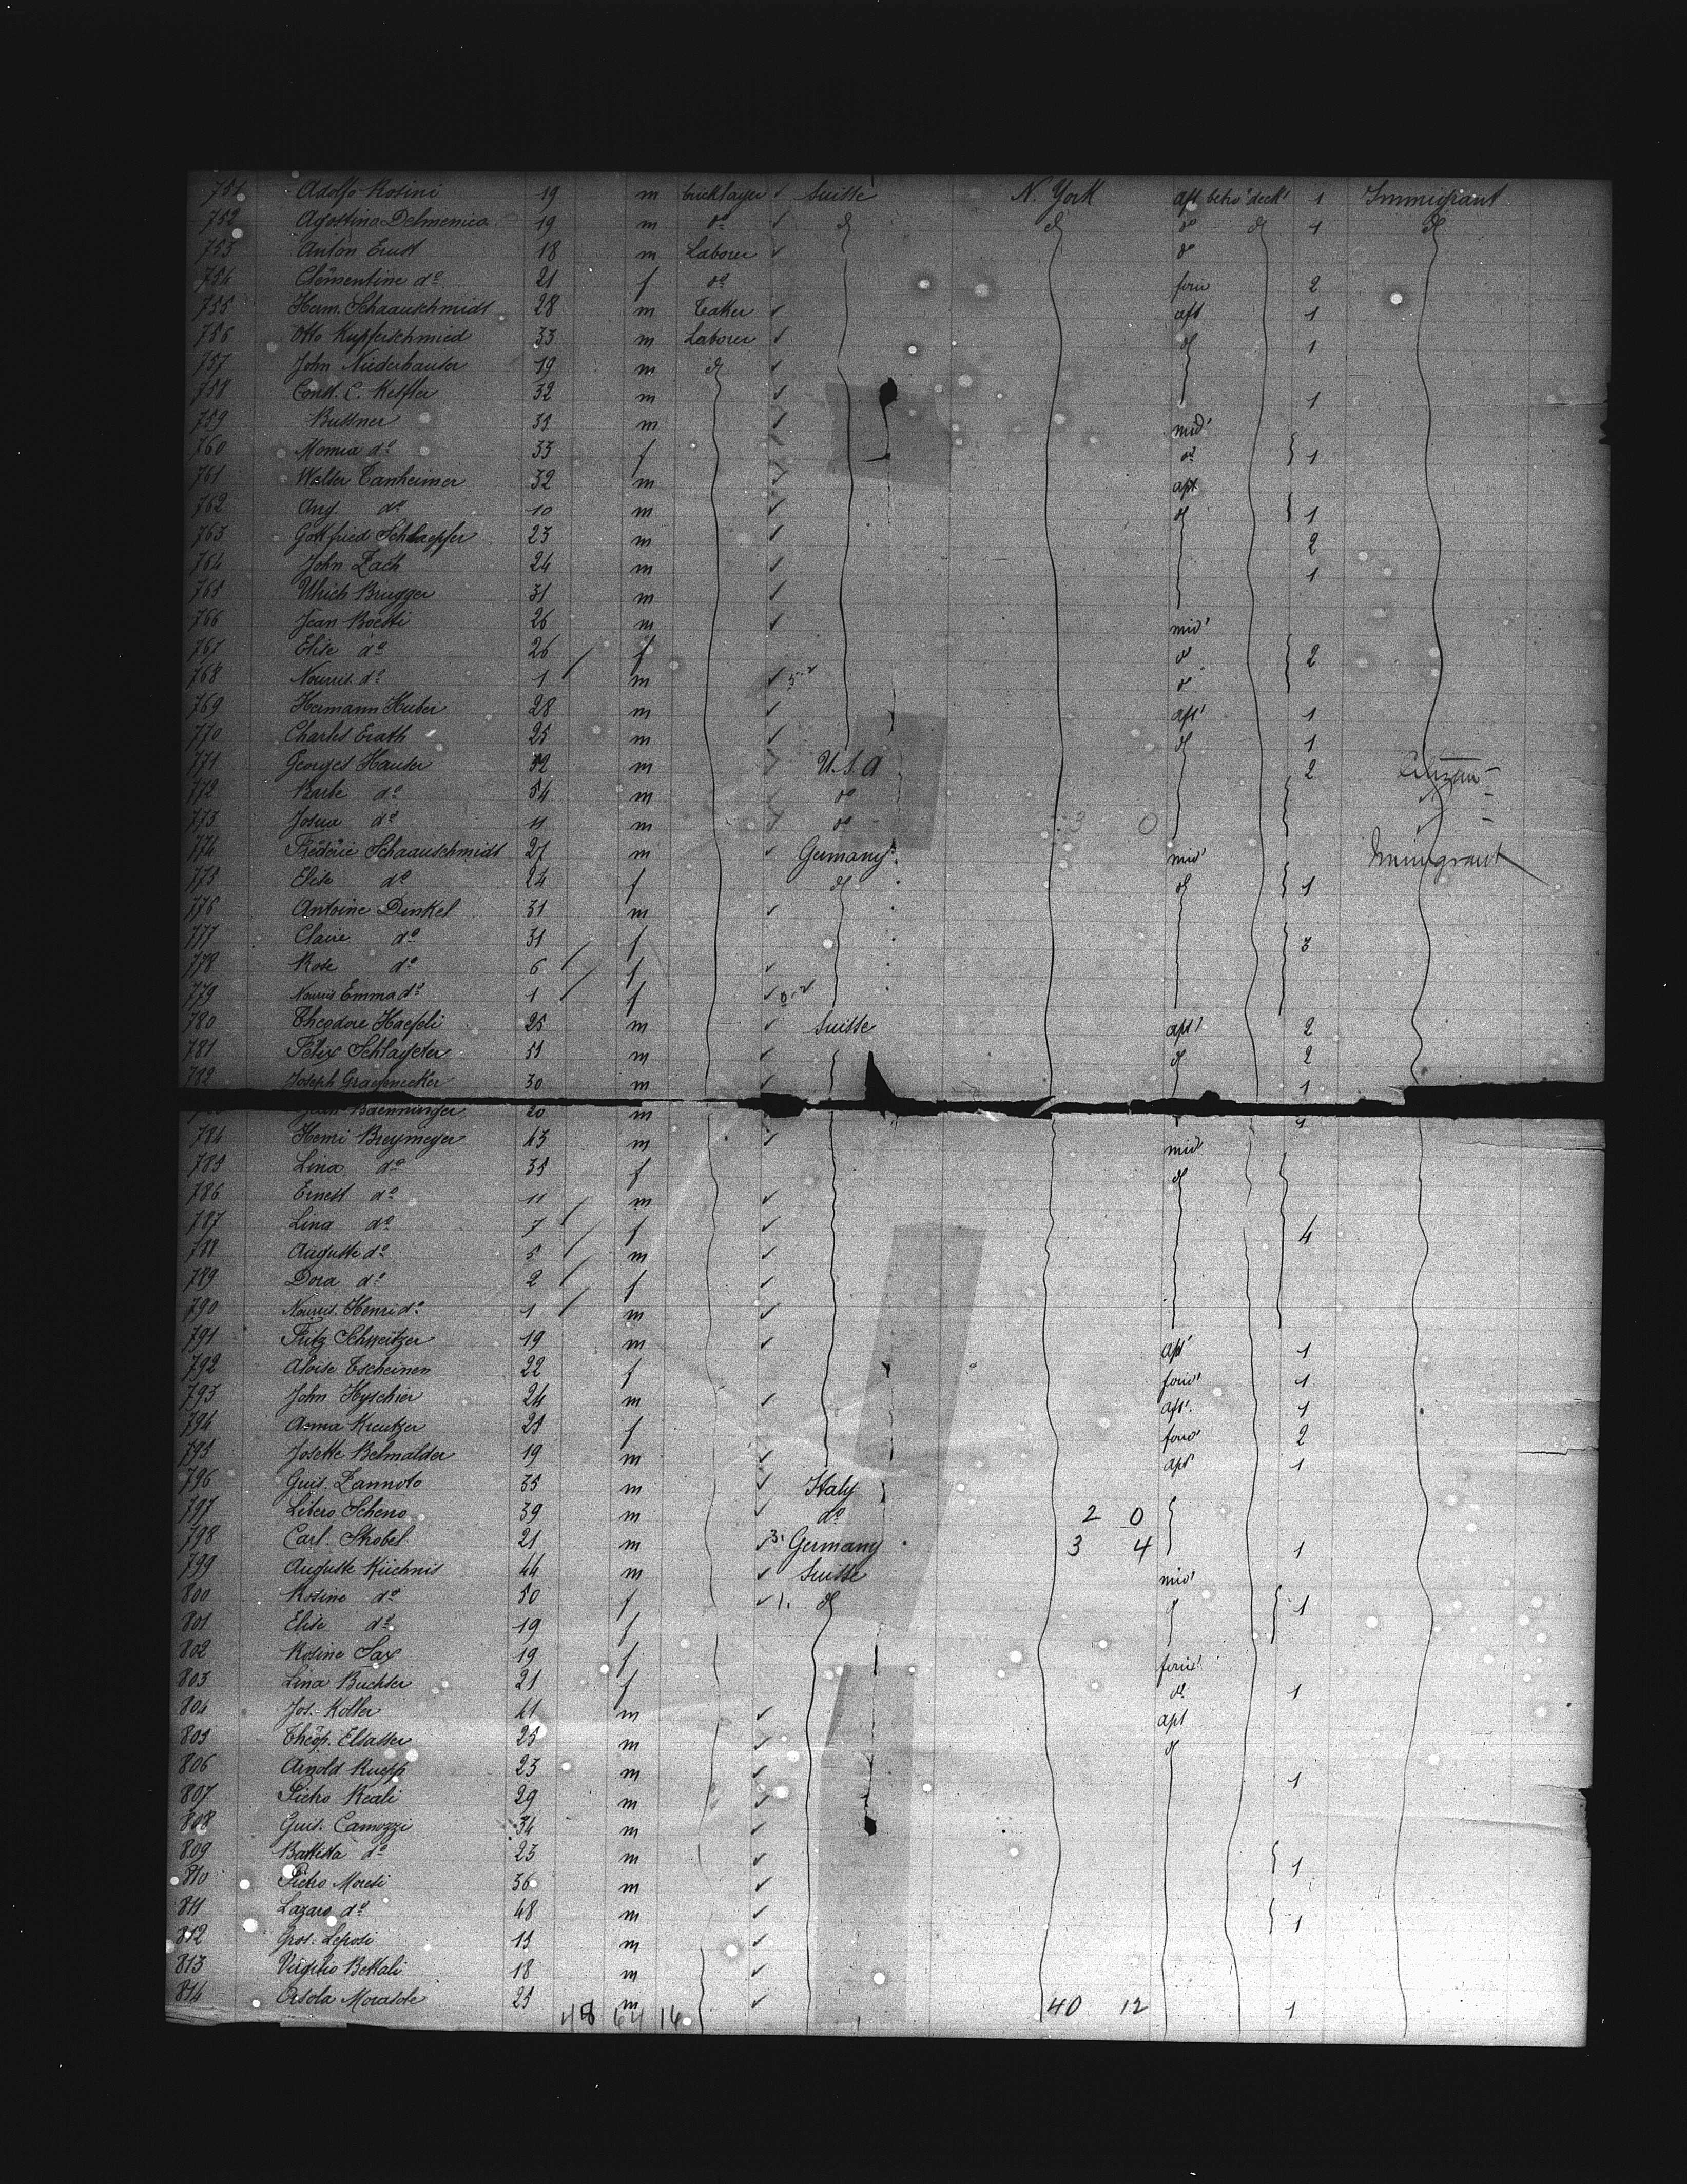 751 Adolfo Rosini 19 m bricklayer ✓ Suisse N. York aft betw' deck' 1 Immigrant
752 Agostino Delmenico 19 m do ✓ do do do do 1 do
753 Anton Ernst 18 m Laborer ✓ do
754 Clementine do 21 f do forw 2
755 Herm. Schaauschmidt 28 m Baker ✓ aft 1
756 Otto Kupferschmied 33 m Laborer ✓ do 1
757 John Niederhauser 19 m do ✓
758 Const. C. Kessler 32 m ✓ 1
759 Buttner 35 m ✓ mid'
760 Momia do 33 f do 1
761 Walter Tanheimer 32 m ✓ aft
762 Aug. do 10 m ✓ do 1
763 Gottfried Schlaepfer 23 m ✓ 2
764 John Zach 24 m ✓ 1
765 Ulrich Brugger 31 m ✓
766 Jean Boesti 26 m ✓ mid'
767 Elise do 26 f do 2
768 Nourris. do 1 m ✓ do
769 Hermann Huber 28 m ✓ aft' 1
770 Charles Erath 25 m ✓ do 1
771 Georges Hauser 32 m U.S.A 2 Citizen
772 Barbe do 54 m do
773 Josua do 11 m do 3 0
774 Frédéric Schaauschmidt 27 m ✓ Germany mid' Immigrant
775 Elise do 24 f do do 1
776 Antoine Dinkel 31 m ✓
777 Claire do 31 f 3
778 Rose do 6 f ✓
779 Nourris Emma do 1 f ✓
780 Theodore Haefeli 25 m ✓ Suisse aft' 2
781 Félix Schlageter 51 m ✓ do 2
782 Joseph Graefenecker 30 m ✓ 1
Jean Baenninger 20 m
784 Henri Breymeyer 43 m ✓ mid
785 Lina do 35 f do
786 Ernest do 11 m ✓
787 Lina do 7 f ✓ 4
788 Auguste do 5 m ✓
789 Dora do 2 f ✓
790 Nourris. Henri do 1 m ✓
791 Fritz Schweitzer 19 m ✓ aft' 1
792 Aloise Tscheinen 22 f forw' 1
793 John Hyschier 24 m ✓ aft'. 1
794 Anna Kreutzer 25 f forw' 2
795 Josette Belmalder 19 m ✓ aft 1
796 Guis. Zannoto 35 m ✓ Italy
797 Libero Scheno 39 m ✓ do 2 0
798 Carl. Strobel 21 m ✓ Germany 3 4 1
799 Auguste Küchnis 44 m ✓ Suisse mid'
800 Rosine do 50 f ✓ 1. do do 1
801 Elise do 19 f
802 Rosine Sax 19 f forw'
803 Lina Buchser 21 f do 1
804 Jos. Koller 41 m ✓ aft
805 Théop. Elsasser 25 m ✓ do
806 Arnold Ruepp 23 m ✓ 1
807 Pietro Reali 29 m ✓
808 Guis. Camozzi 34 m ✓
809 Battista do 23 m ✓ 1
810 Pietro Moresi 36 m ✓
811 Lazaro do 48 m ✓ 1
812 Gros. Leposi 15 m ✓
813 Virgilio Bettali 18 m ✓
814 Orsola Morasole 25 m ✓ 40 12 1
48 64 16